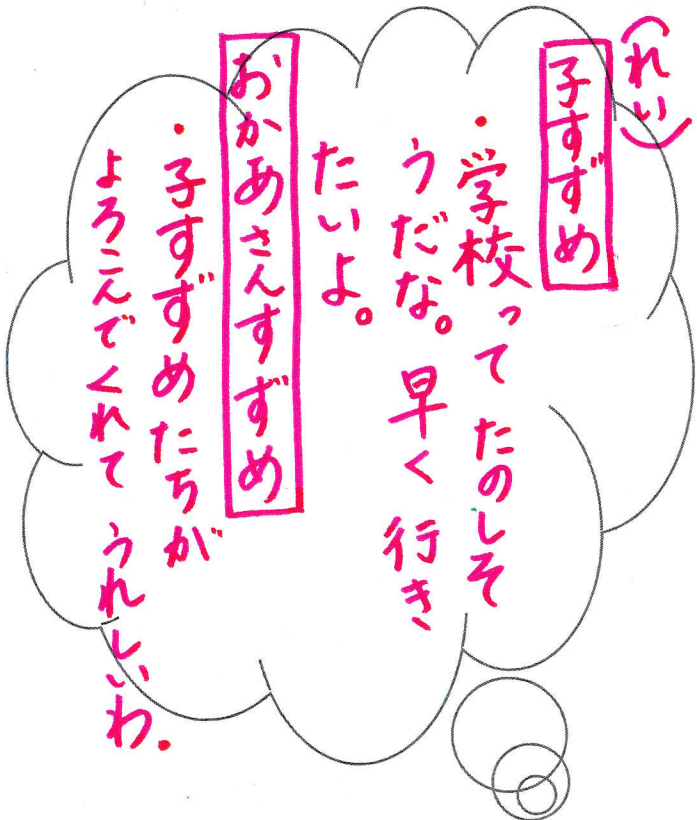 （れい）
子すずめ
・学校って たのしそ
うだな。早く 行き
たいよ。
おかあさんすずめ
・子すずめたちが
よろこんでくれて うれしいわ.